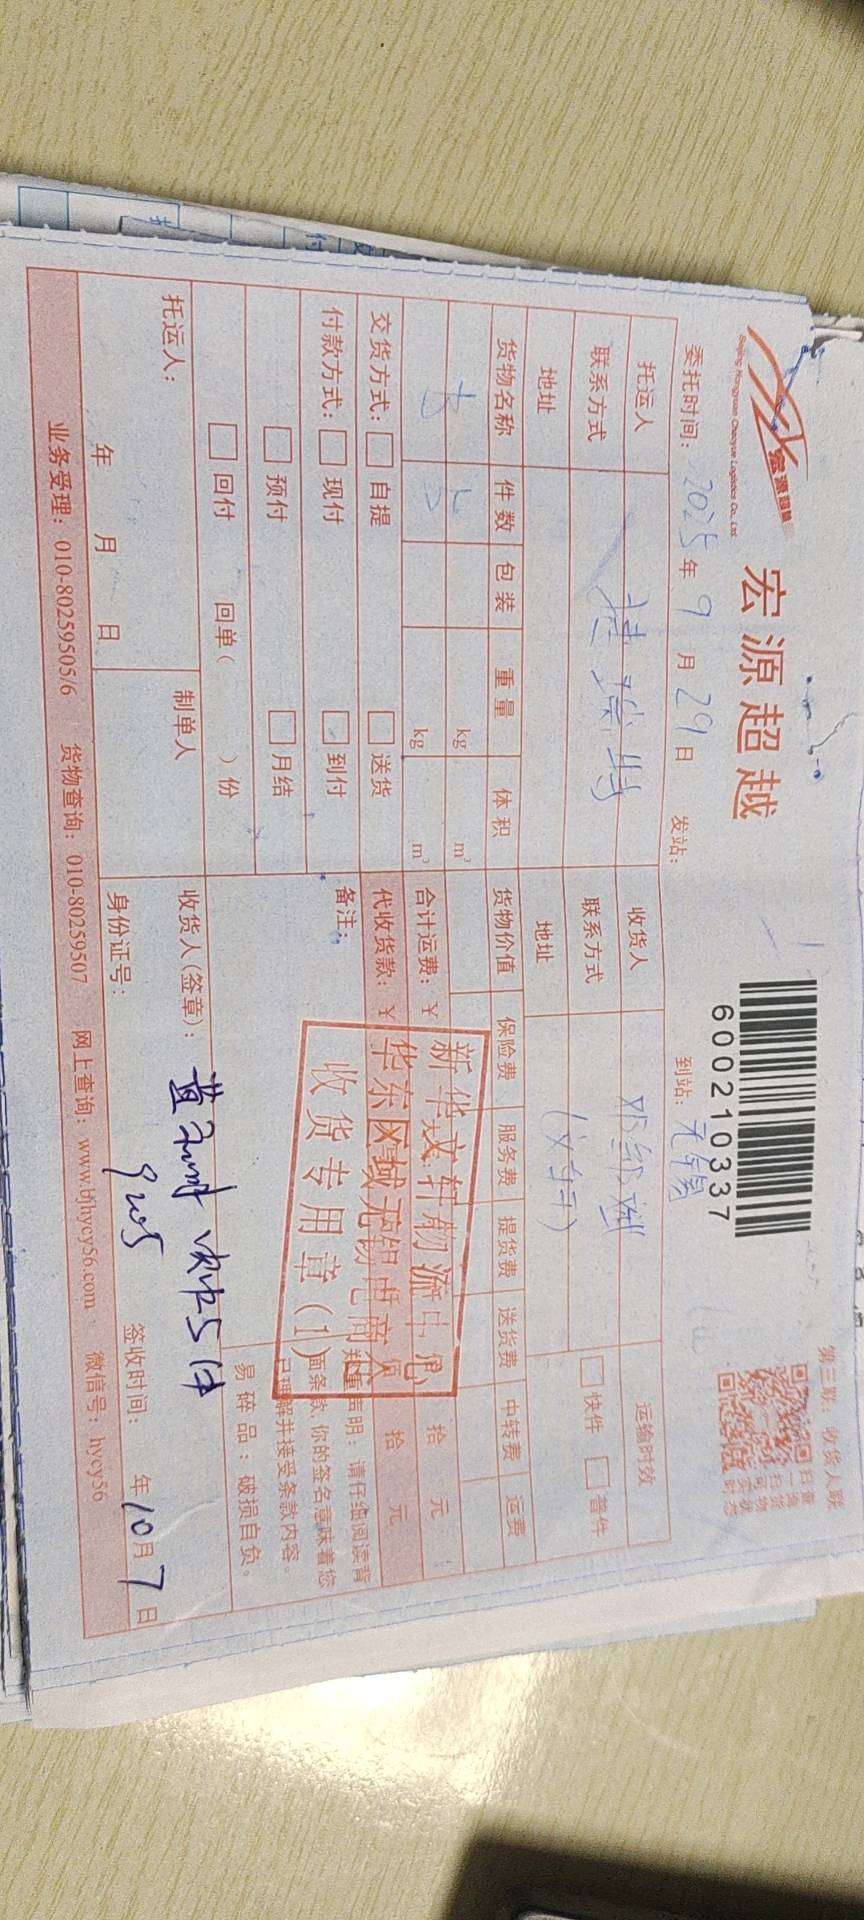 宏源超越
Beijing Hongyuan Chaoyue Logistics Co., Ltd.
宏源超越
600210337
第三联：收货人联
委托时间：2025年9月29日 发站： 到站：无锡
托运人 捷瑞特 收货人 邓红斌 运输时效
联系方式 联系方式 (文轩) 快件 普件
地址 地址
货物名称 件数 包装 重量 体积 货物价值 保险费 服务费 提货费 送货费 中转费 运费
书 5 kg m³
kg m³ 合计运费：￥ 拾 元
交货方式： 自提 送货 代收货款：￥ 拾 元
付款方式： 现付 到付 备注：
预付 月结
回付 回单( )份
新华文轩物流中心
华东区域无锡电商仓
收货专用章(1)
郑重声明：请仔细阅读背
面条款,你的签名意味着您
已理解并接受条款内容。
易碎品：破损自负。
托运人： 制单人 收货人(签章)： 收5件
年 月 日 身份证号： 签收时间： 年10月7日
业务受理：010-80259505/6 货物查询：010-80259507 网上查询：www.bjhycy56.com 微信号：hycy56